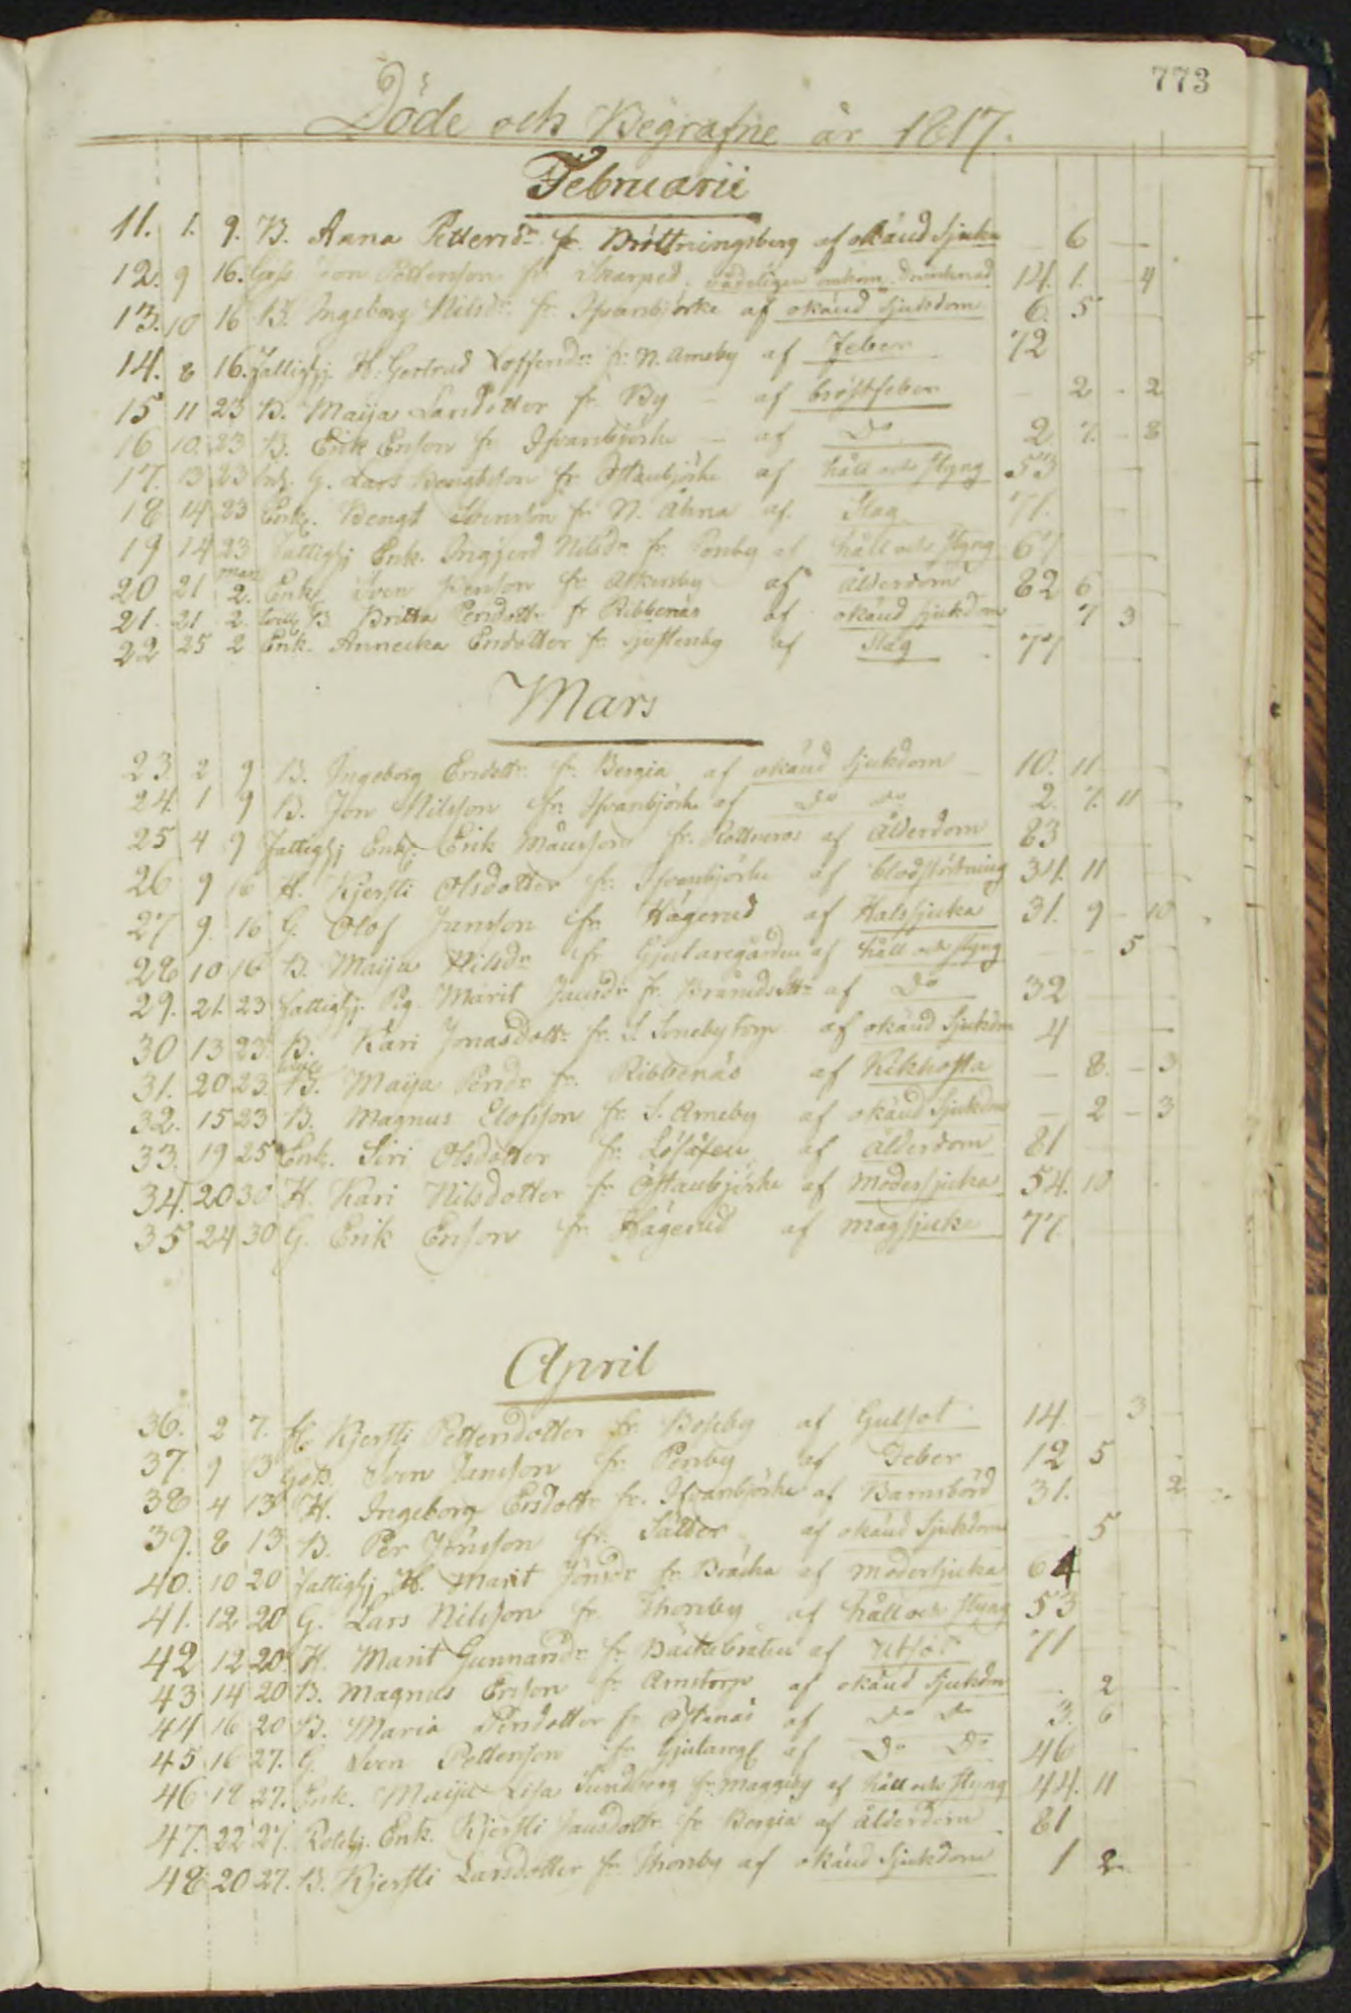 773
Döde och Begrafne år 1817.
Februarii
11. 1. 9. B. Anna Pettersdr. fr. Bröttningsberg af okänd Sjuka – 6 –
12. 9 16. Pettersson fr. omkom drunknad 14. 1. – 4
13. 10 16 B. Ingeborg Nilsdr. fr. Ifvanbjörke af okänd Sjukdom 6. 5
14. 8 16. Fattighj. H. Gertrud fr. N. Ameby af Feber 72
15 11 23 B. Maija Larsdotter fr. By – af bröstfeber – 2 – 2
16 10. 23 B. Erik Erson fr. Ifvanbjörke – af Do 2. 7. – 8
17. 13 23 G. Lars Bengtsson fr. Östanbjörke af håll och styng 53
18 14 23 Enk. Bengt Svensson fr. N. Åhna af Slag 71.
19 14 23 Fattighj Enk. Ingjerd Nilsdr. fr. Ponby af håll och styng 67
20 21 mars 2. Enk. Sven fr. af Ålderdom 82 6
21. 21 2. B Britta Persdottr. fr Ribbenäs af okänd sjukdm – 7 3
22 25 2 Enk. Annicka Ersdotter fr. af Slag 77
Mars
23 2 9 B. Ingeborg Ersdottr. fr. Bergia af okänd Sjukdom 10. 11
24. 1 9 B. Jon Nilsson fr. Ifvanbjörke af Do Do 2. 7. 11
25 4 9 Fattighj Enk. Erik Månsson fr. Rottneros af Ålderdom 83
26 9 16 H. Kjersti Olsdotter fr. Ifvanbjörke af blodstörtning 34. 11
27 9. 16 G. Olof Jansson fr. Hagerud af Halssjuka 31. 9 – 10
28 10 16 B. Maija Nilsdr. fr Gjutaregården af håll och styng – – 5
29. 21. 23 Fattighj. Pig. Marit Jansdr. fr. af Do 32
30 13 23. B. Kari Jonasdottr. fr. S. Smebytorp af okänd Sjukdm 4
31. 20 23. B. Maija Persdr. fr. Ribbenäs af Kikhosta – 8. – 3
32. 15 23 B. Magnus Elofsson fr. S. Ameby af okänd Sjukdm – 2 – 3
33. 19 25 Enk. Siri Olsdotter fr. af ålderdom 81
34. 20 30 H. Kari Nilsdotter fr Östanbjörke af modersjuka 54. 10
35 24 30 G. Erik Erson fr. Hagerud af magsjuka 77
April
36. 2 7. Fl. Kjersti Pettersdotter fr. Bosseby af Gulsot 14. – 3
37. 9 13 Goss. Sven Jansson fr. Ponby af Feber 12 5
38 4 13 H. Ingeborg Ersdottr. fr. Ifvanbjörke af Barnsbörd 31. 2
39. 8 13 B. Per Jönsson fr. Sälder af okänd Sjukdom – 5
40. 10 20 Fattighj H. Marit Jönsdr fr. Bräcka af modersjuka 64
41. 12 20 G. Lars Nilsson fr. Thonby af håll och styng 53
42 12 20 H. Marit Gunnarsdr. fr. Bäckebråten af 71
43 14 20 B. Magnus Erson fr. Amstorp af okänd Sjukdm 2
44 16 20 B. Maria Persdotter fr Östanås af Do Do 3. 6
45 16 27. G. Sven Pettersson fr Gjutareg. af Do Do 46
46 19 27. Enk. Maija Lisa Sundberg fr. Maggeby af håll och styng 44. 11
47. 22 27. Rotehj. Enk. Kjersti Jansdottr. fr Bergia af ålderdom 81
48 20 27. B. Kjersti Larsdotter fr. Thonby af okänd Sjukdom 1 2.